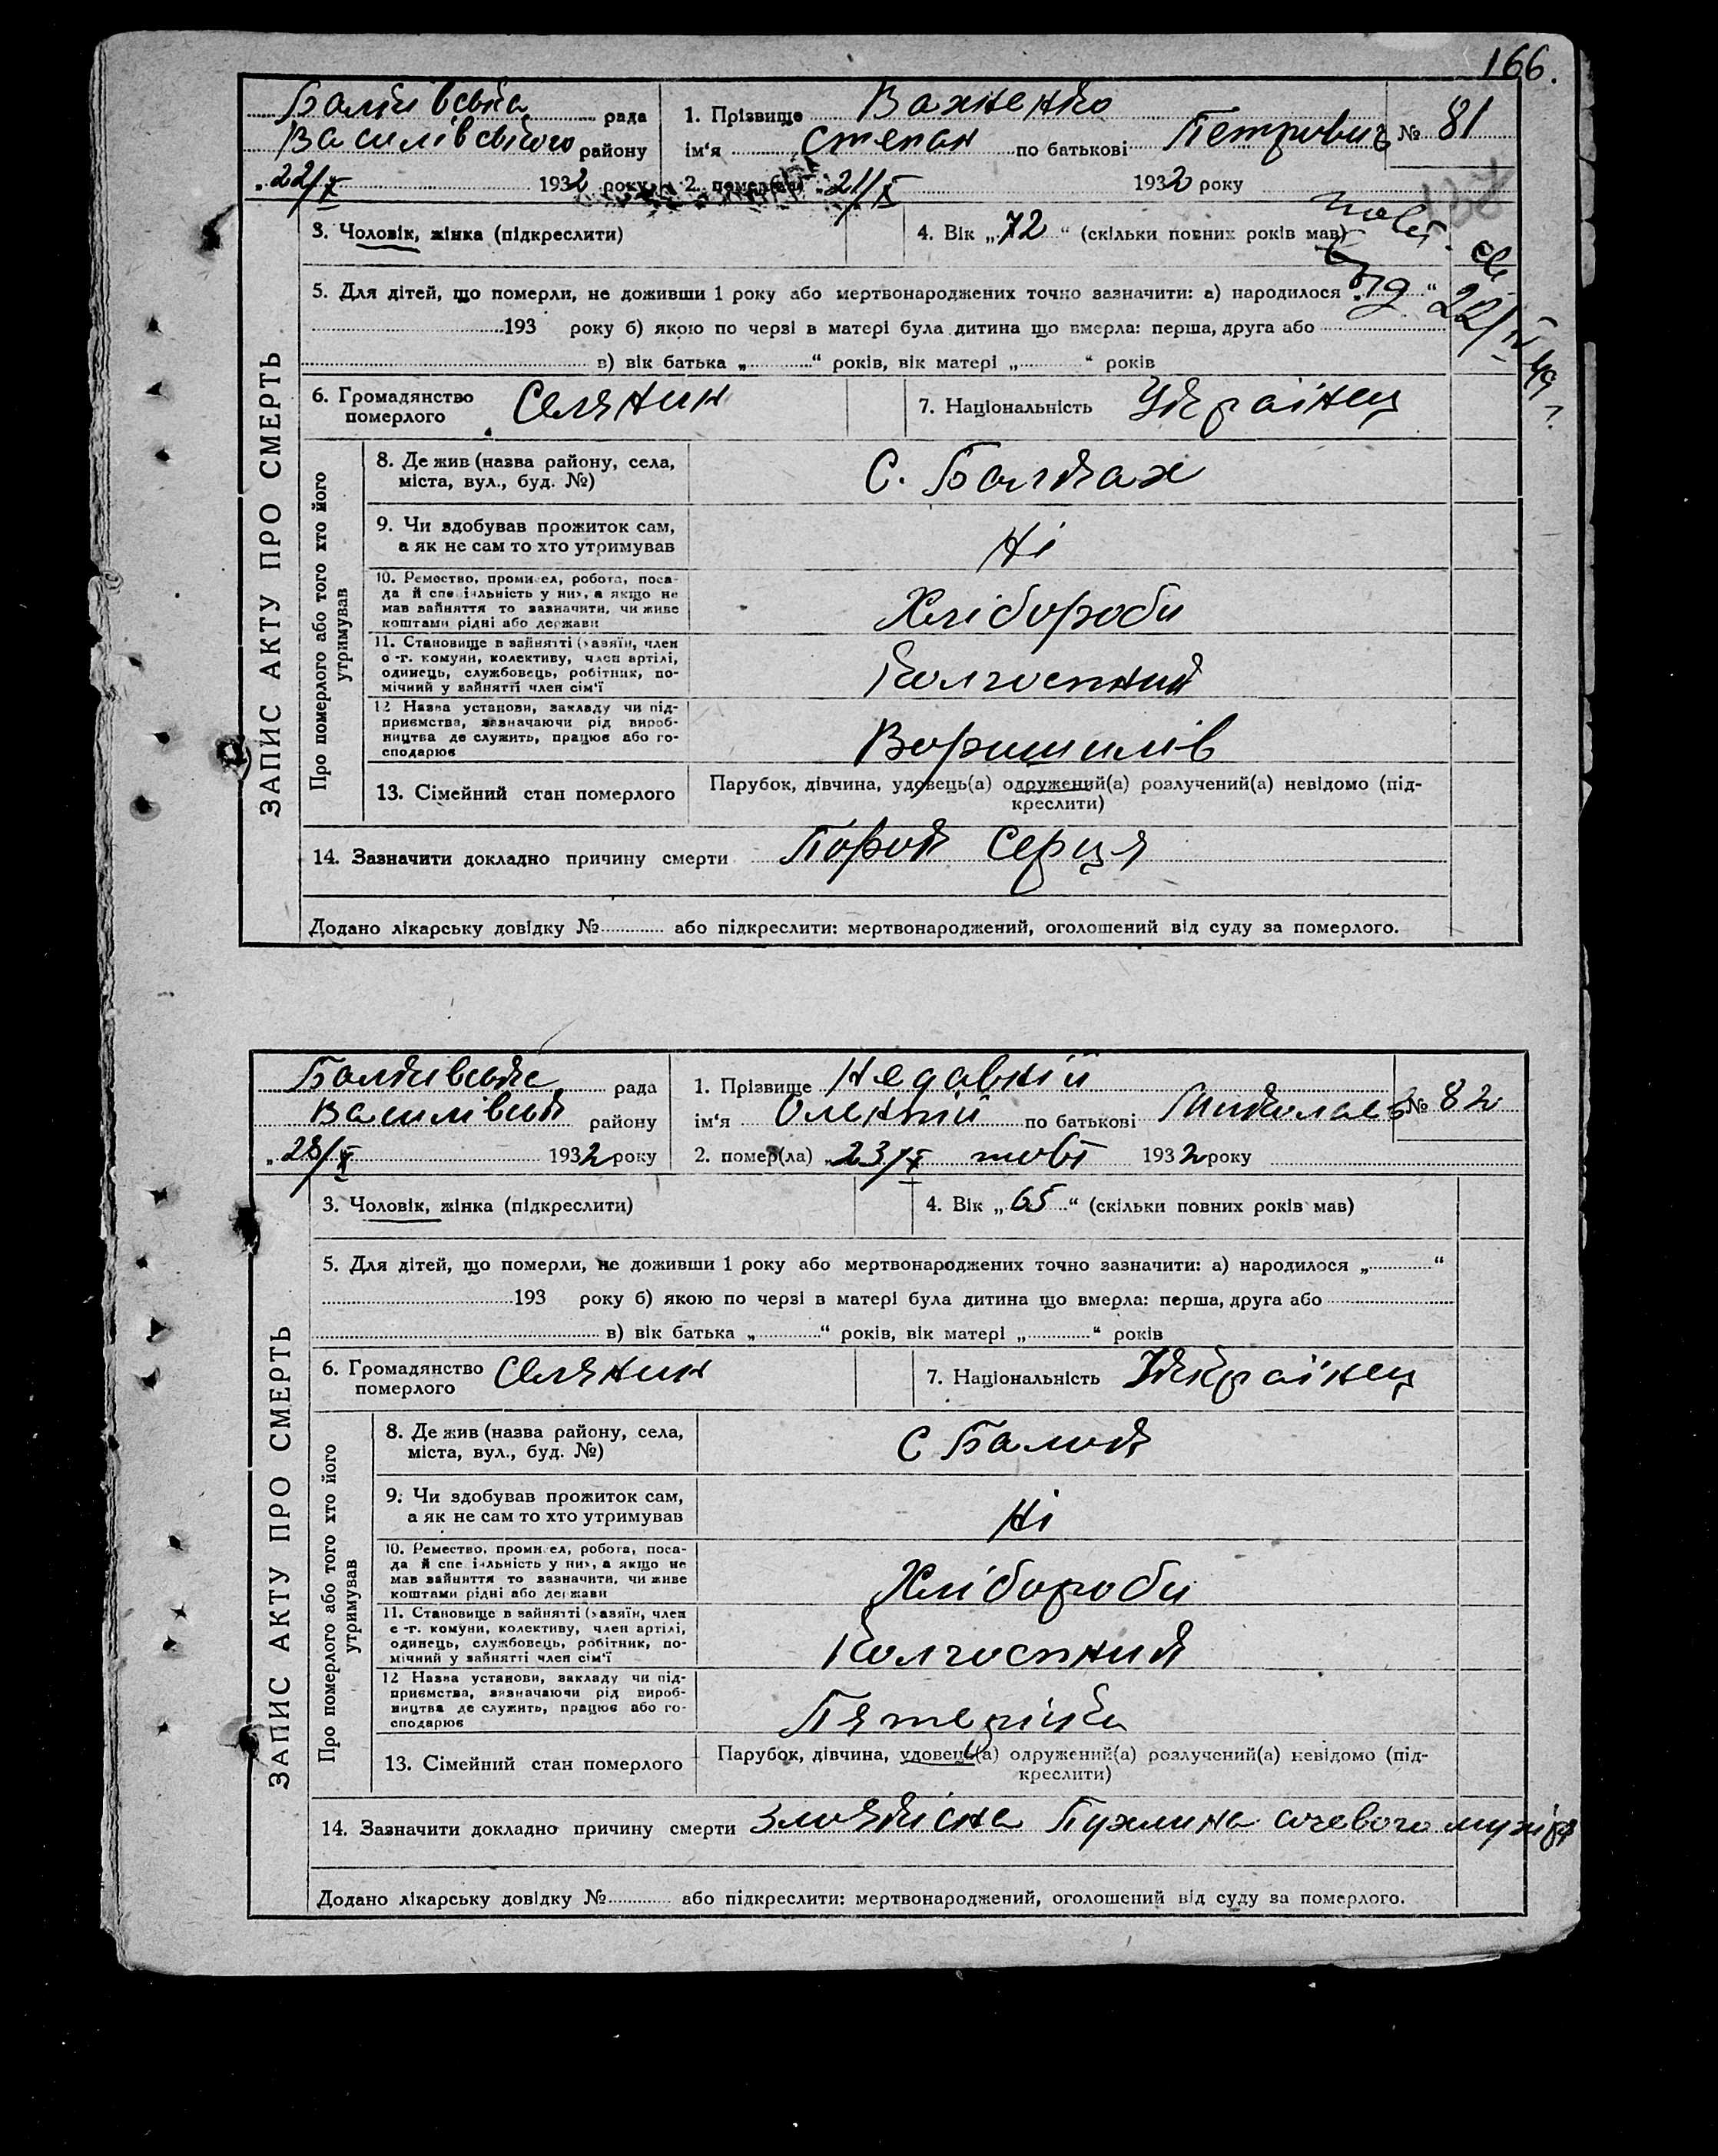 166.
Балківська рада
Василівського району
„22/X 1932 року
1. Прізвище Вахненко
ім'я Степан по батькові Петрович
№ 81
2. помер(ла) „21/X 1932 року
3. Чоловік, жінка (підкреслити)
4. Вік „72“ (скільки повних років мав)
повт. св.
22/IV 49 г.
5. Для дітей, що померли, не доживши 1 року або мертвонароджених точно зазначити: а) народилося „ “
193 року б) якою по черзі в матері була дитина що вмерла: перша, друга або
в) вік батька „ “ років, вік матері „ “ років
6. Громадянство померлого Селянин
7. Національність Українец
ЗАПИС АКТУ ПРО СМЕРТЬ
Про померлого або того хто його утримував
8. Де жив (назва району, села, міста, вул., буд. №)
С. Балках
9. Чи здобував прожиток сам, а як не сам то хто утримував
Ні
10. Ремество, промисел, робота, поса-
да й спеціяльність у них, а якщо не
мав зайняття то зазначити, чи живе
коштами рідні або держави
Хлібороби
11. Становище в зайнятті (хазяїн, член
с.-г. комуни, колективу, член артілі,
одинець, службовець, робітник, по-
мічний у зайнятті член сім'ї
Колгоспник
12 Назва установи, закладу чи під-
приємства, зазначаючи рід вироб-
ництва де служить, працює або го-
сподарює
Воришилів
13. Сімейний стан померлого
Парубок, дівчина, удовець(а) одружений(а) розлучений(а) невідомо (під-
креслити)
14. Зазначити докладно причину смерти Порок Серця
Додано лікарську довідку № або підкреслити: мертвонароджений, оголошений від суду за померлого.
Балківська рада
Василівськ району
„28/X 1932 року
1. Прізвище Недавній
ім'я Олексій по батькові Миколаєв
№ 82
2. помер(ла) „23/X 1932 року
3. Чоловік, жінка (підкреслити)
4. Вік „65“ (скільки повних років мав)
5. Для дітей, що померли, не доживши 1 року або мертвонароджених точно зазначити: а) народилося „ “
193 року б) якою по черзі в матері була дитина що вмерла: перша, друга або
в) вік батька „ “ років, вік матері „ “ років
6. Громадянство померлого Селянин
7. Національність Українец
ЗАПИС АКТУ ПРО СМЕРТЬ
Про померлого або того хто його утримував
8. Де жив (назва району, села, міста, вул., буд. №)
С Балок
9. Чи здобував прожиток сам, а як не сам то хто утримував
Ні
10. Ремество, промисел, робота, поса-
да й спеціяльність у них, а якщо не
мав зайняття то зазначити, чи живе
коштами рідні або держави
Хлібороби
11. Становище в зайнятті (хазяїн, член
с.-г. комуни, колективу, член артілі,
одинець, службовець, робітник, по-
мічний у зайнятті член сім'ї
Колгоспник
12 Назва установи, закладу чи під-
приємства, зазначаючи рід вироб-
ництва де служить, працює або го-
сподарює
Пятерічка
13. Сімейний стан померлого
Парубок, дівчина, удовець(а) одружений(а) розлучений(а) невідомо (під-
креслити)
14. Зазначити докладно причину смерти Злоякісна Пухлина сичевого мухіря
Додано лікарську довідку № або підкреслити: мертвонароджений, оголошений від суду за померлого.